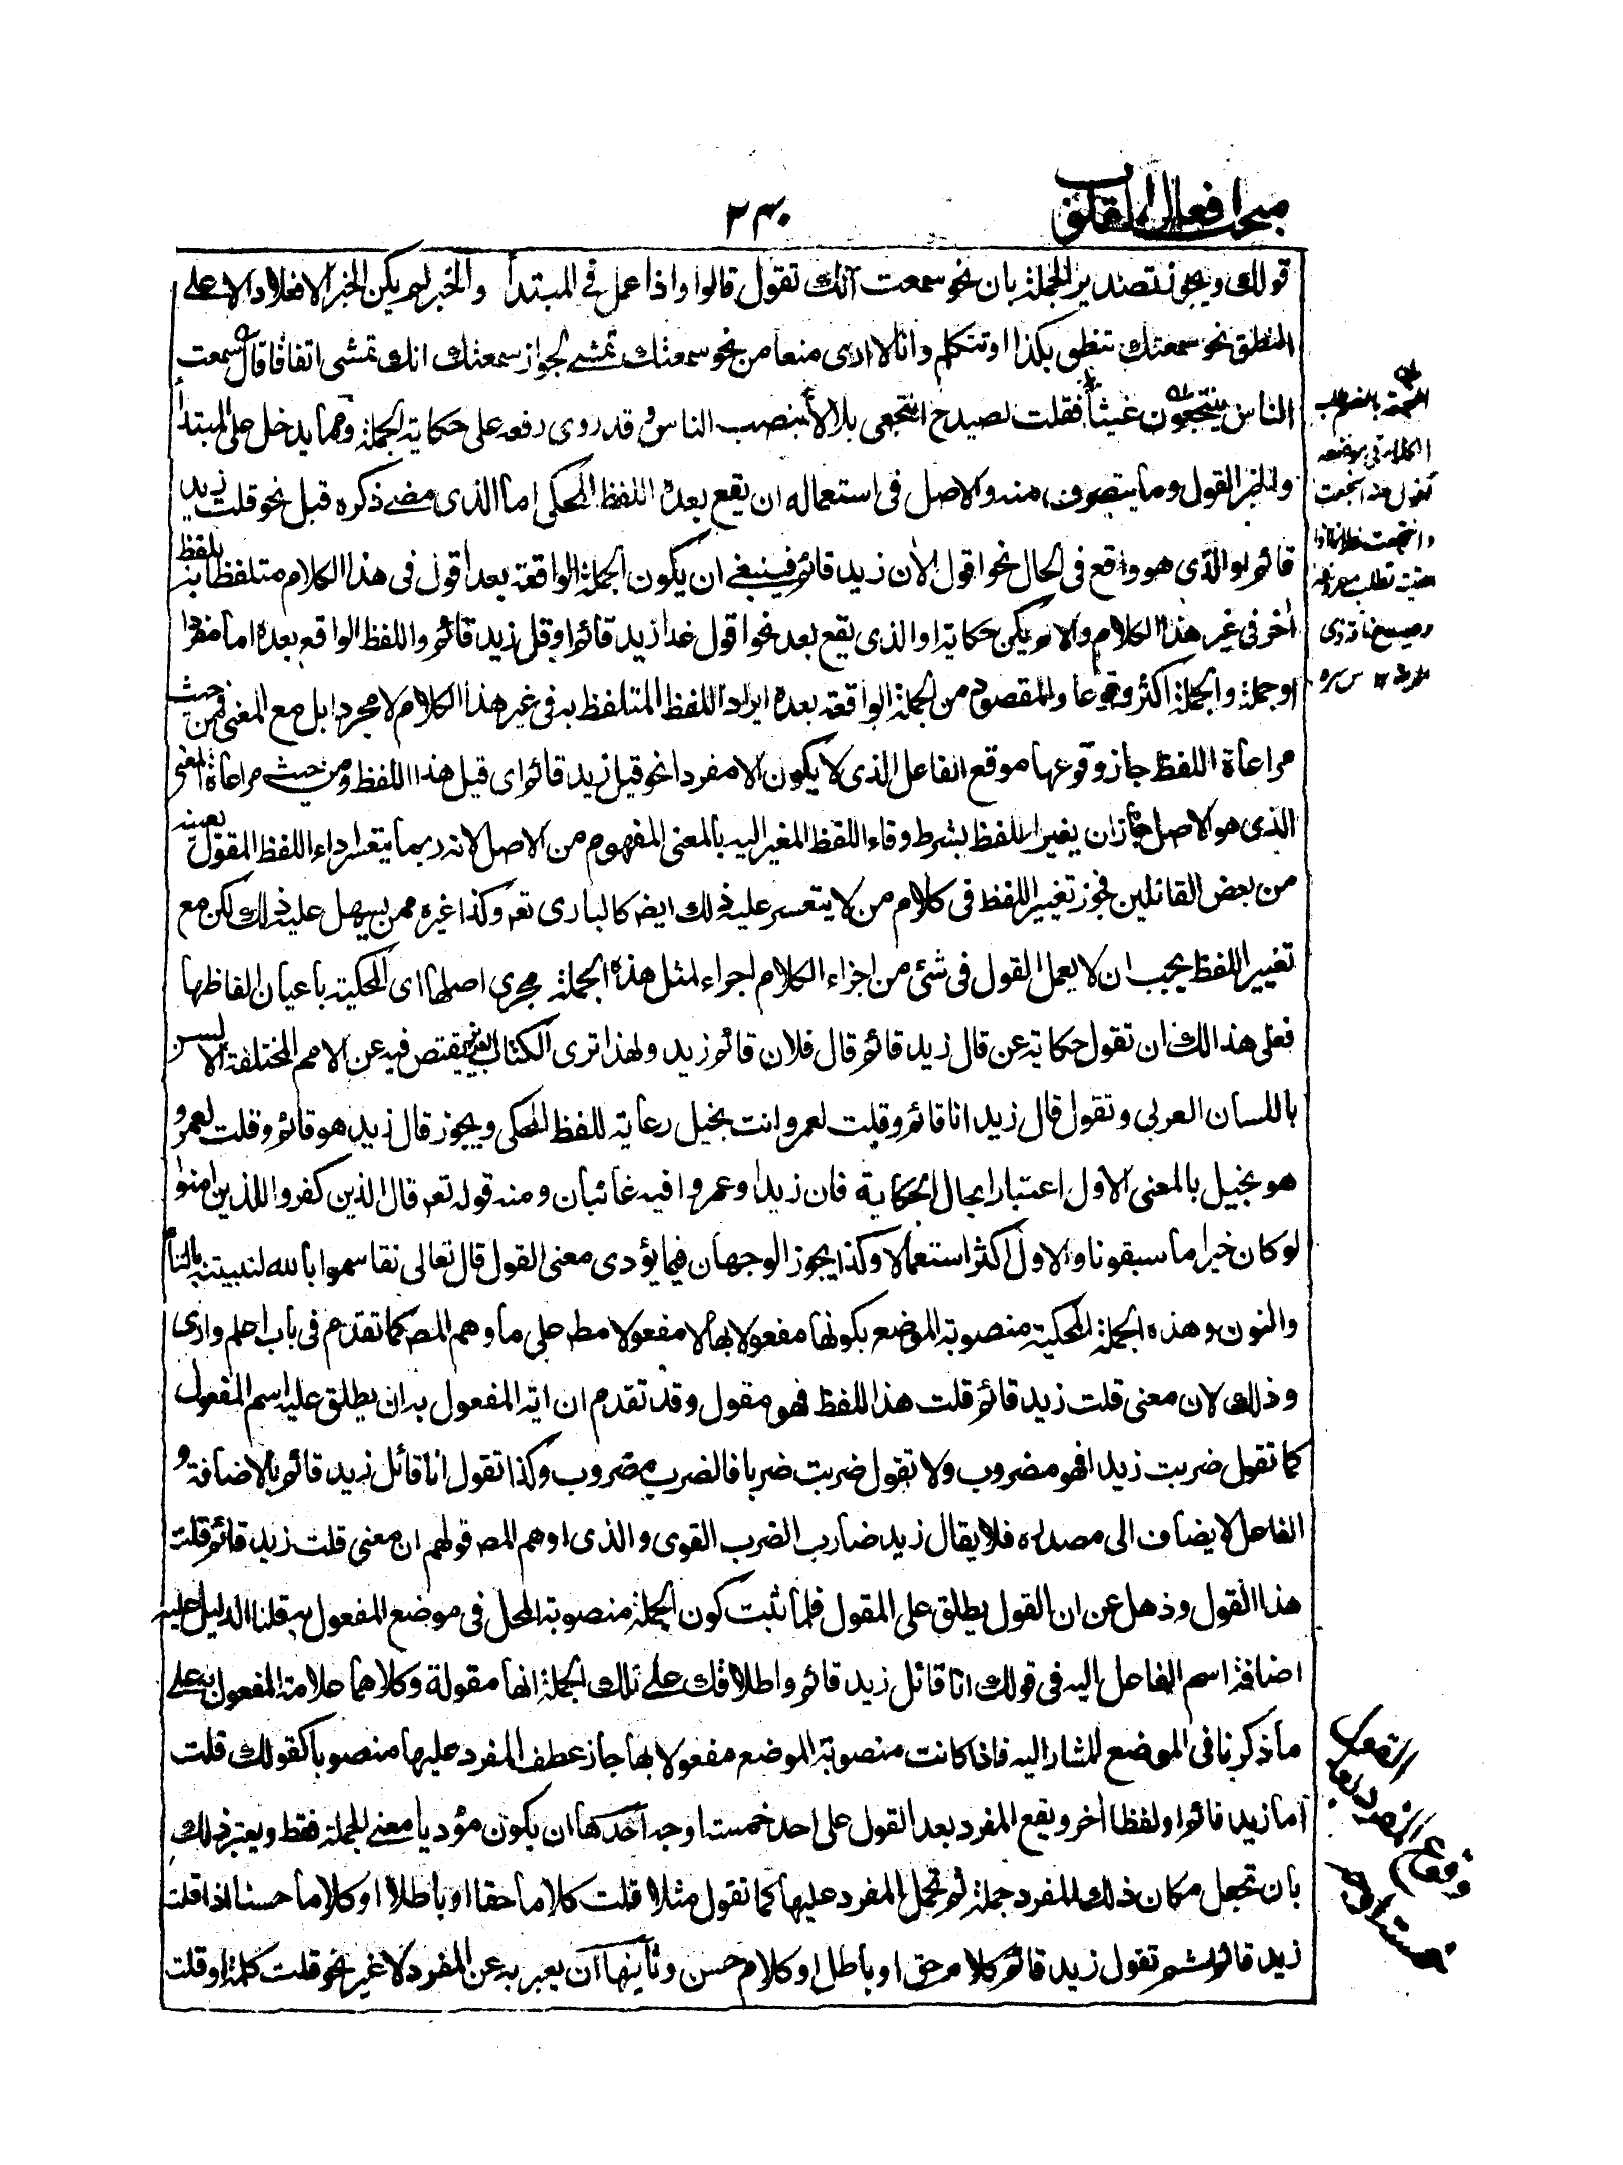 مبحث افعال القلوب
٢٣٠
قولك ويجوز تصدير الجملة بان نحو سمعت انك تقول قالوا واذا عمل في المبتدأ والخبر لم يكن الخبر الا فعلا دالا على
النطق نحو سمعتك تنطق بكذا او تتكلم وانا لا ارى منعا من نحو سمعتك تمشى لجواز سمعتك انك تمشى اتفاقا قال سمعت
الناس ينتجعون غيثا فقلت لصيدح انتجعى بلالا بنصب الناس وقد روى رفعه على حكاية الجملة ومما يدخل على المبتدأ
والخبر القول وما يتصرف منه والاصل فى استعماله ان يقع بعده اللفظ المحكى اما الذى مضى ذكره قبل نحو قلت زيد
قائم او الذى هو واقع فى الحال نحو اقول الان زيد قائم فينبغى ان يكون الجملة الواقعة بعد اقول فى هذا الكلام متلفظا بها بلفظ
اخر فى غير هذا الكلام والا لم يكن حكاية او الذى يقع بعد نحو اقول غدا زيد قائم او قل زيد قائم واللفظ الواقع بعده اما مفرد
او جملة والجملة اكثر وقوعا والمقصود من الجملة الواقعة بعده ايراد اللفظ المتلفظ به فى غير هذا الكلام لا مجردا بل مع المعنى فمن حيث
مراعاة اللفظ جاز وقوعها موقع الفاعل الذى لا يكون الا مفردا نحو قيل زيد قائم اى قيل هذا اللفظ ومن حيث مراعاة المعنى
الذى هو الاصل جاز ان يغير اللفظ بشرط وفاء اللفظ المغير اليه بالمعنى المفهوم من الاصل لانه ربما يتعسر اداء اللفظ المقول بعينه
من بعض القائلين فجوز تغيير اللفظ فى كلام من لا يتعسر عليه ذلك ايضا كالبارى تعه وكذا غيره ممن يسهل عليه ذلك لكن مع
تغيير اللفظ يجب ان لا يعمل القول فى شئ من اجزاء الكلام اجراء لمثل هذه الجملة مجرى اصلها اى المحكية باعيان الفاظها
فعلى هذا لك ان تقول حكاية عن قال زيد قائم قال فلان قائم زيد ولهذا ترى الكتاب العزيز يقتص فيه عن الامم المختلفة الالسن
باللسان العربى وتقول قال زيد انا قائم وقلت لعمرو انت بخيل رعاية للفظ المحكى ويجوز قال زيد هو قائم وقلت لعمرو
هو بخيل بالمعنى الاول اعتبارا بحال الحكاية فان زيدا وعمروا فيه غائبان ومنه قوله تعه قال الذين كفروا للذين امنوا
لو كان خيرا ما سبقونا والاول اكثر استعمالا وكذا يجوز الوجهان فيما يؤدى معنى القول قال تعالى تقاسموا بالله لنبيتنه بالتاء
والنون وهذه الجملة المحكية منصوبة الموضع بكونها مفعولا بها لا مفعولا مطه على ما وهم المصه كما تقدم فى باب اعلم وارى
وذلك لان معنى قلت زيد قائم قلت هذا اللفظ فهو مقول وقد تقدم ان اية المفعول به ان يطلق عليه اسم المفعول
كما تقول ضربت زيدا فهو مضروب ولا تقول ضربت ضربا فالضرب مضروب وكذا تقول انا قائل زيد قائم بالاضافة و
الفاعل لا يضاف الى مصدره فلا يقال زيد ضارب الضرب القوى والذى اوهم المصه قولهم ان معنى قلت زيد قائم قلت
هذا القول وذهل عن ان القول يطلق على المقول فلما ثبت كون الجملة منصوبة المحل فى موضع المفعول به قلنا الدليل عليه
اضافة اسم الفاعل اليه فى قولك انا قائل زيد قائم واطلاقك على تلك الجملة انها مقولة وكلاهما علامة المفعول به على
ما ذكرنا فى الموضع المشار اليه فاذا كانت منصوبة الموضع مفعولا بها جاز عطف المفرد عليها منصوبا كقولك قلت
اما زيد قائم او لفظا اخر ويقع المفرد بعد القول على احد خمسة اوجه احدها ان يكون مؤديا معنى الجملة فقط ويعتبر ذلك
بان تجعل مكان ذلك المفرد جملة ثم تحمل المفرد عليها كما تقول مثلا قلت كلاما حقا او باطلا او كلاما حسنا اذا قلت
زيد قائم ثم تقول زيد قائم كلام حق او باطل او كلام حسن وثانيها ان يعبر به عن المفرد لا غير نحو قلت كلمة او قلت
النجعة بالضم طلب
الكلاء فى موضعه
تقول منه انتجعت
وانتجعت فلانا اذا
اتيته تطلب معروفه